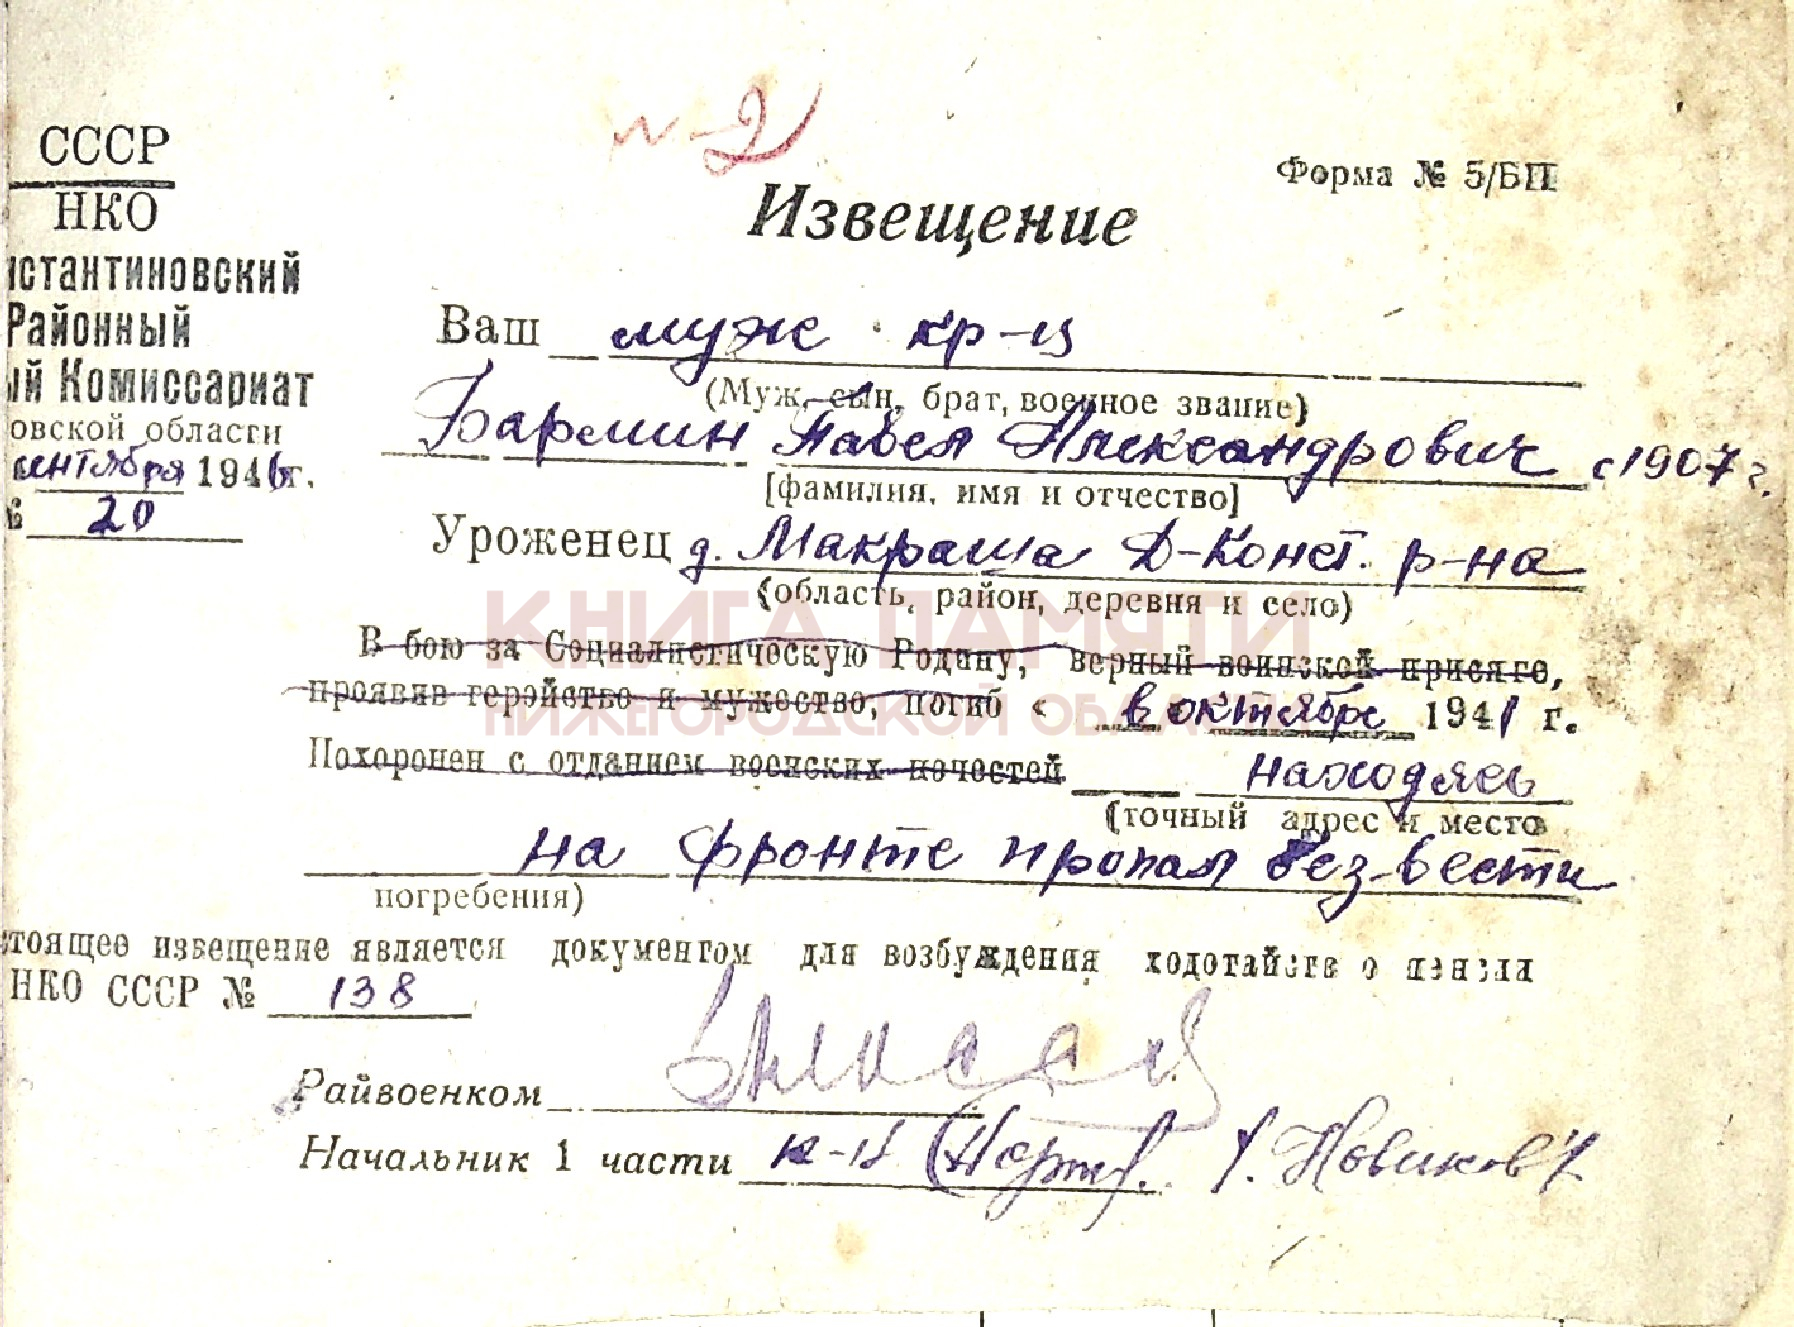 № 2
СССР
НКО
нстантиновский
Районный
ый Комиссариат
овской области
сентября 1946г.
№ 20
Форма № 5/БП
Извещение
Ваш муж кр-ц
(Муж, сын, брат, военное звание)
Бармин Павел Александрович с 1907 г.
[фамилия, имя и отчество]
Уроженец д. Макраша Д-Конст. р-на
(область, район, деревня и село)
КНИГА ПАМЯТИ
НИЖЕГОРОДСКОЙ ОБЛАСТИ
В бою за Социалистическую Родину, верный воинской присяге,
проявив геройство и мужество, погиб « в октябре 1941 г.
Похоронен с отданием воинских почестей находясь
(точный адрес и место
на фронте пропал без-вести
погребения)
стоящее извещение является документом для возбуждения ходотайств о пензла
НКО СССР № 138
Райвоенком
Начальник 1 части к-н Новиков